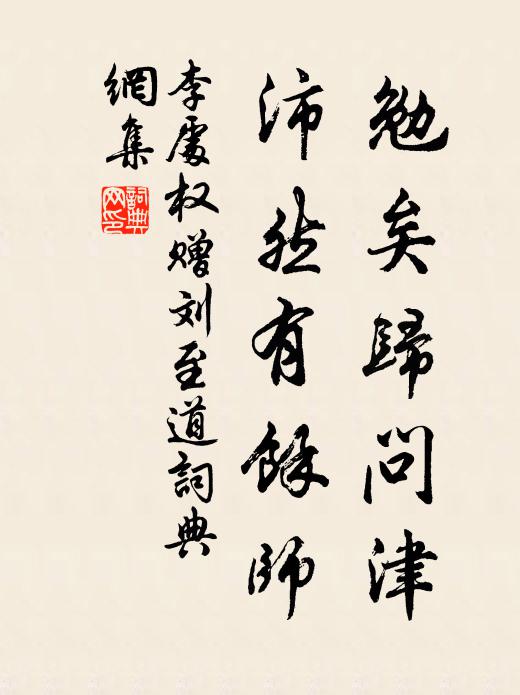 勉矣歸問津
沛然有餘師
李處权赠刘至道詞典
網集
詞典網印